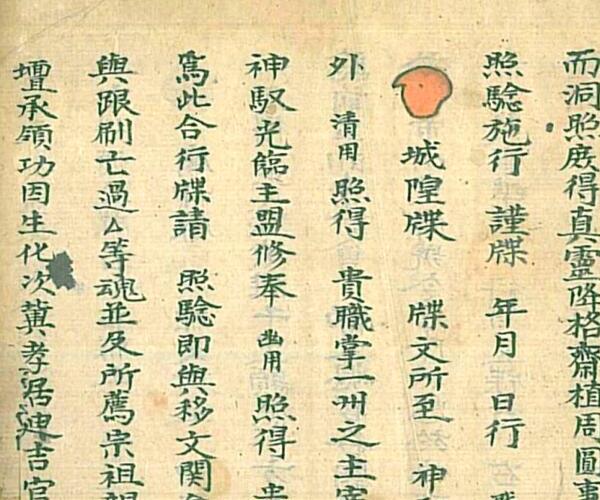 而洞照庻得真靈降格齋植周圓事
照驗施行 謹牒 年月 日行
城隍牒 牒文所至 神
外 清用 照得 貴職掌一州之主宰
神馭光臨主盟修奉 幽用 照得
為此合行牒請 照驗即與移文関
與跟刷亡過厶等魂並及所薦宗祖親
壇承領功因生化次冀孝居迪吉官